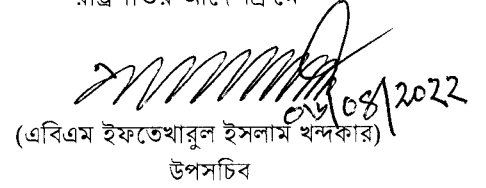 রাষ্ট্রপতির আদেশক্রমে
০৬/০৪/2022
(এবিএম ইফতেখারুল ইসলাম খন্দকার)
উপসচিব